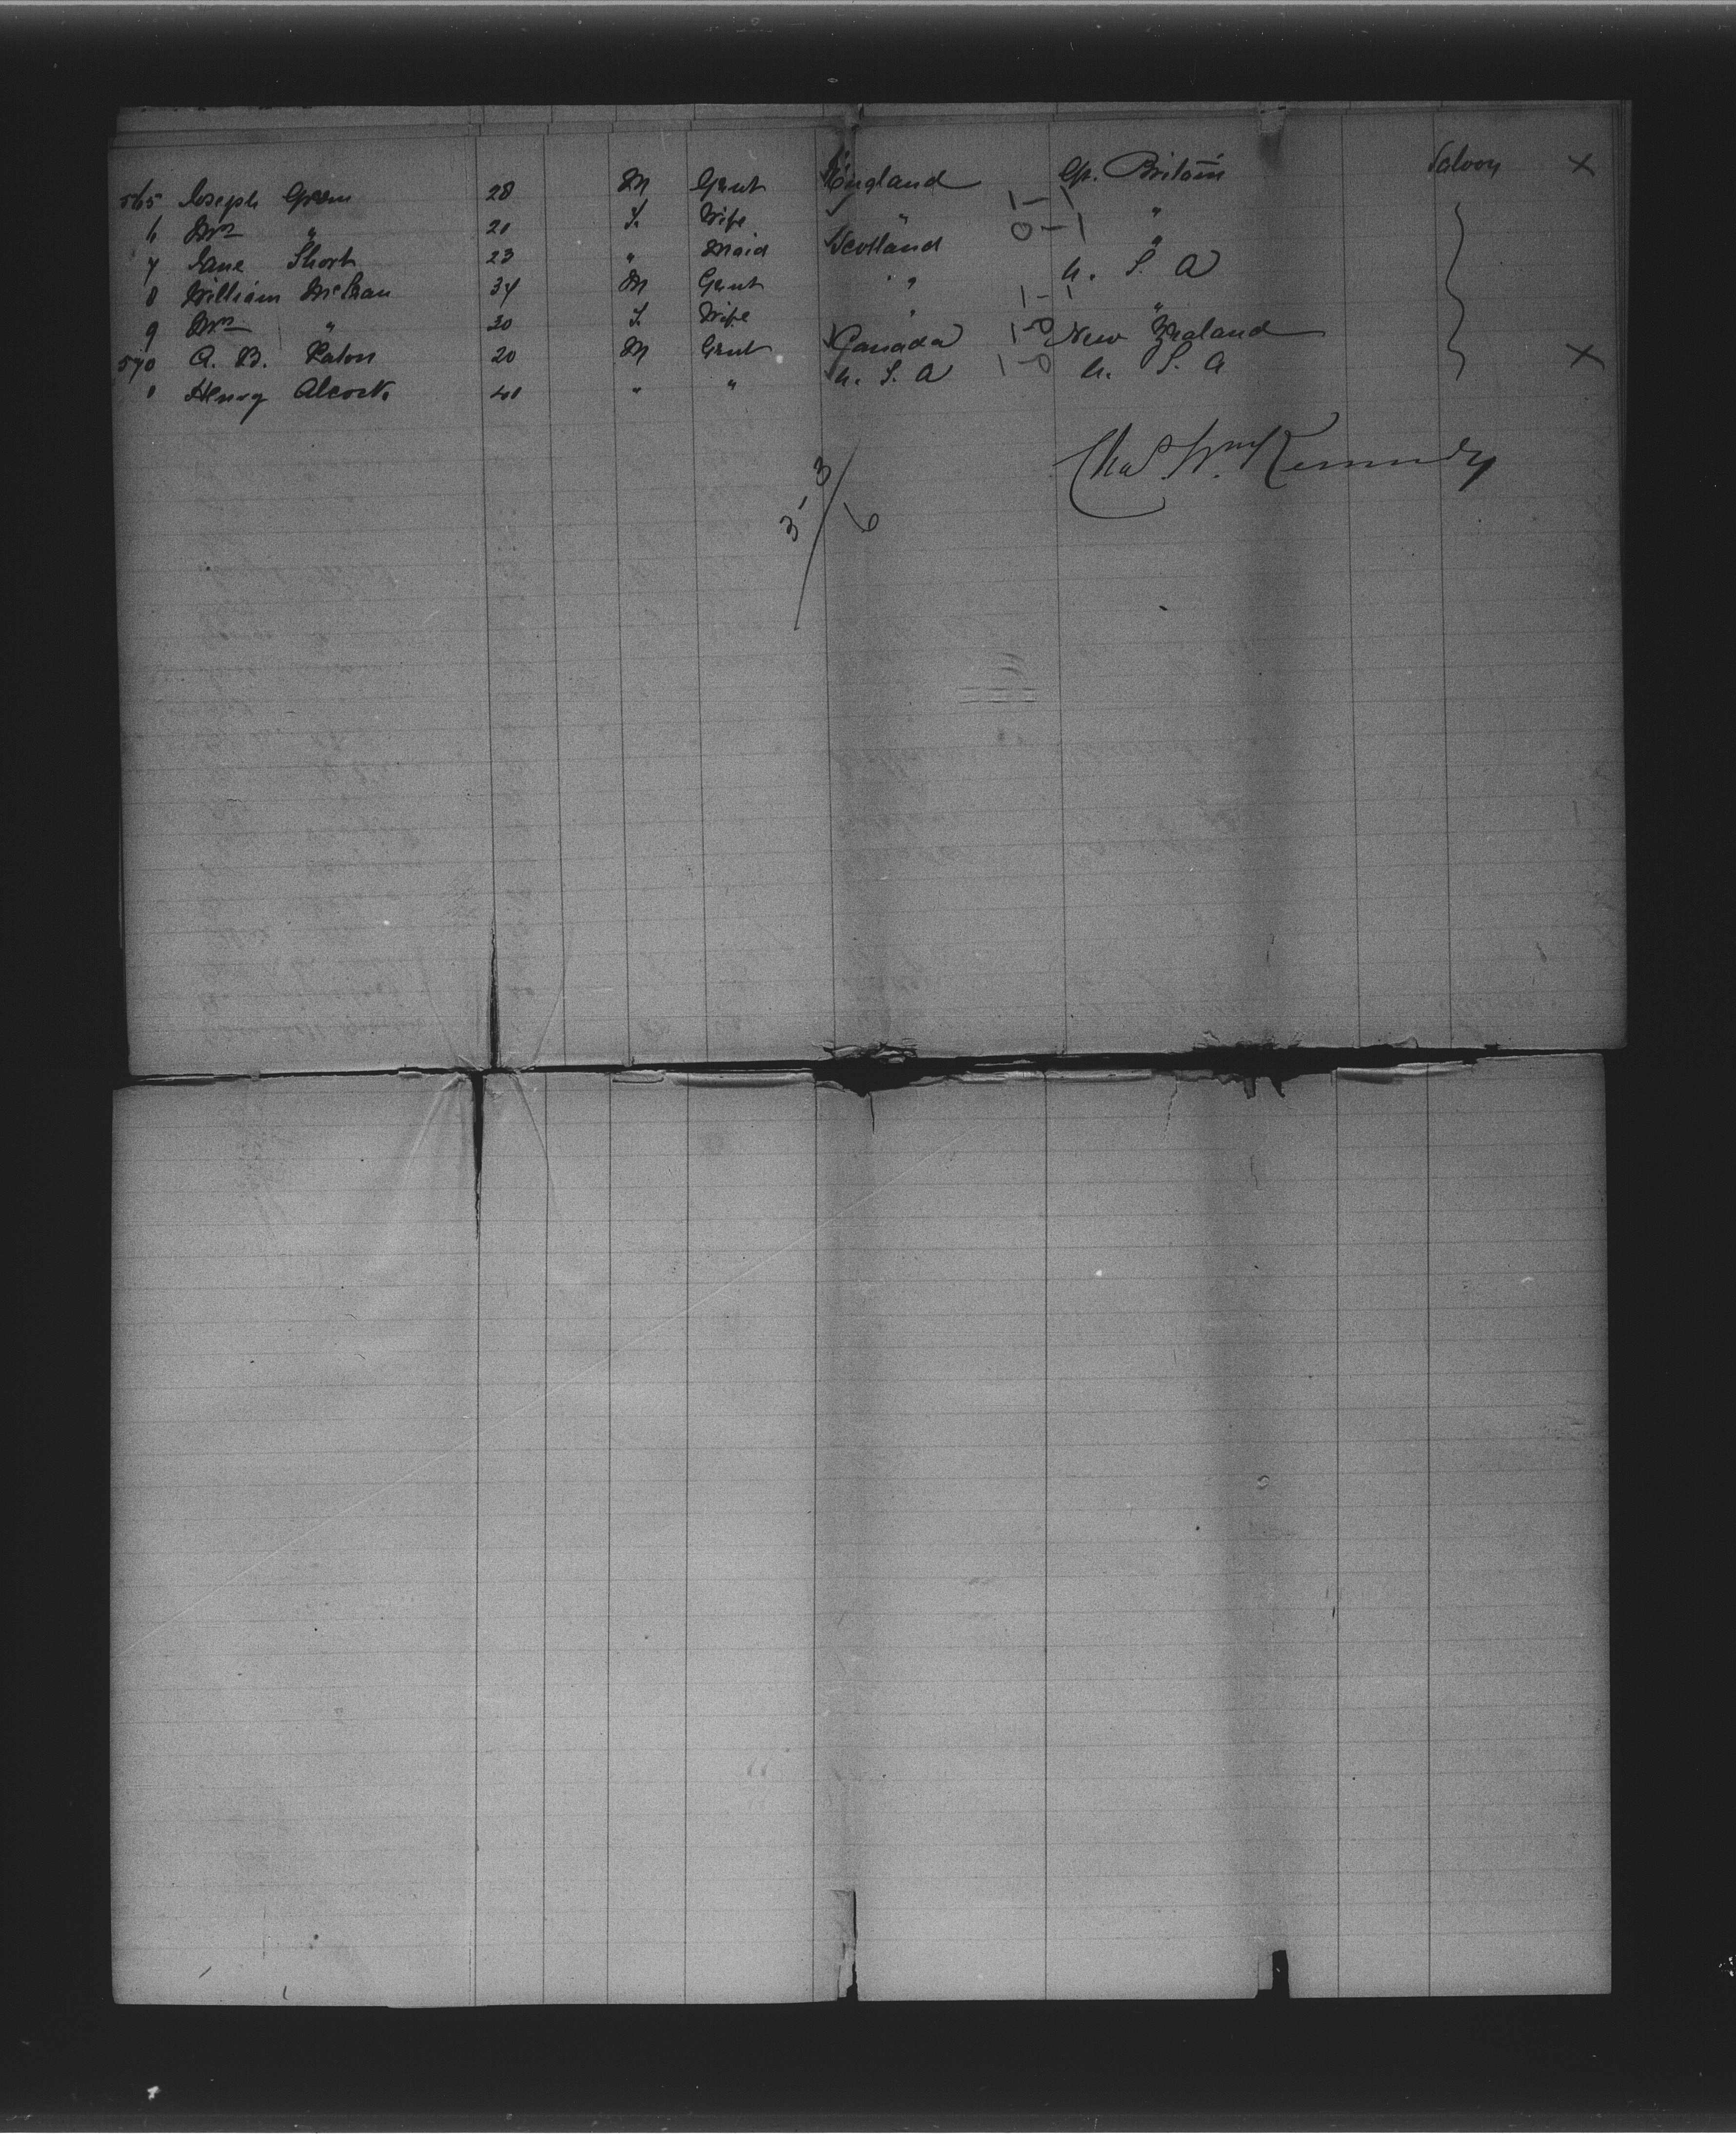 565 Joseph Green 28 M Gent England Gt. Britain Saloon X
6 Mrs " 21 F. Wife " 1-1 "
7 Jane Short 23 " Maid Scotland 0-1 "
8 William McLean 34 M Gent " U. S. A
9 Mrs " 30 F. Wife " 1-1 "
570 A. B. Paton 20 M Gent Canada 1-0 New Zealand
1 Henry Alcock 40 " " U. S. A 1-0 U. S. A X
Chas. Wm. Kennedy
3-3/6